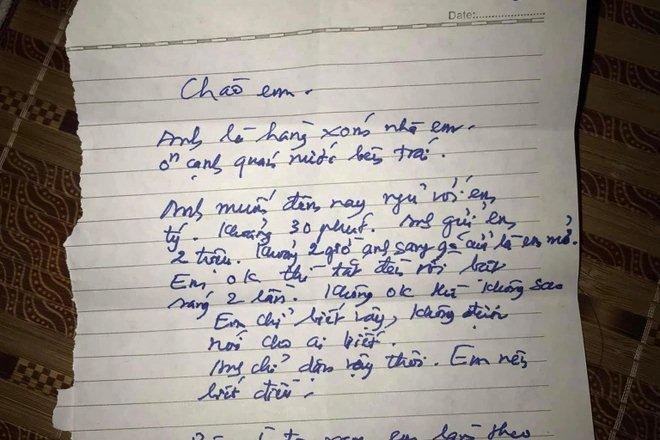 Date:
Chào em.
Anh là hàng xóm nhà em.
ở cạnh quán nước bên trái.
Anh muốn đêm nay ngủ với em
tý. Khoảng 30 phút. Anh gửi em
2 triệu. Khoảng 2 giờ anh sang gõ cửa là em mở.
Em ok thì tắt đèn rồi bật
sáng 2 lần. Không ok thì không sao
Em chỉ biết vậy, không được
nói cho ai biết.
Anh chỉ dặn vậy thôi. Em nên
biết điều!
em làm theo